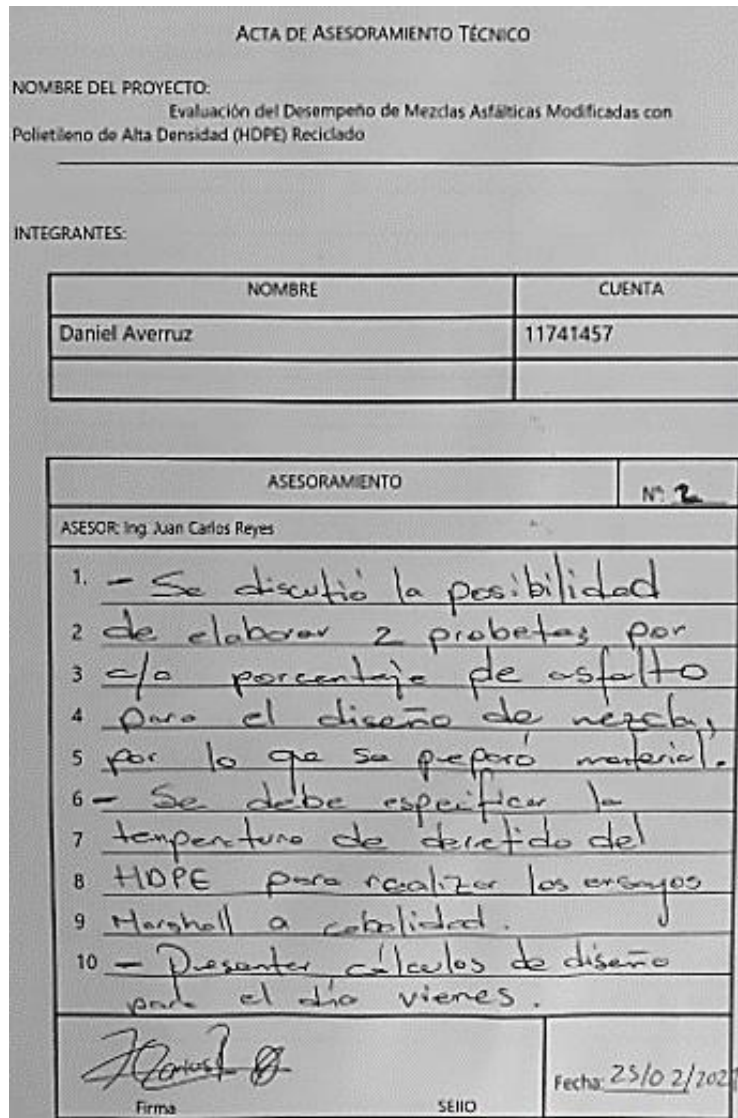 ACTA DE ASESORAMIENTO TÉCNICO
NOMBRE DEL PROYECTO:
Evaluación del Desempeño de Mezclas Asfálticas Modificadas con
Polietileno de Alta Densidad (HDPE) Reciclado
INTEGRANTES:
NOMBRE CUENTA
Daniel Averruz 11741457
ASESORAMIENTO Nº: 2
ASESOR: Ing. Juan Carlos Reyes
1. - Se discutió la posibilidad
2 de elaborar 2 probetas por
3 c/a porcentaje de asfalto
4 para el diseño de mezcla,
5 por lo que se preparó material.
6 - Se debe especificar la
7 temperatura de derretido del
8 HDPE para realizar los ensayos
9 Marshall a cabalidad.
10 - Presentar cálculos de diseño
para el día vienes.
Firma SEllO Fecha: 25/02/202